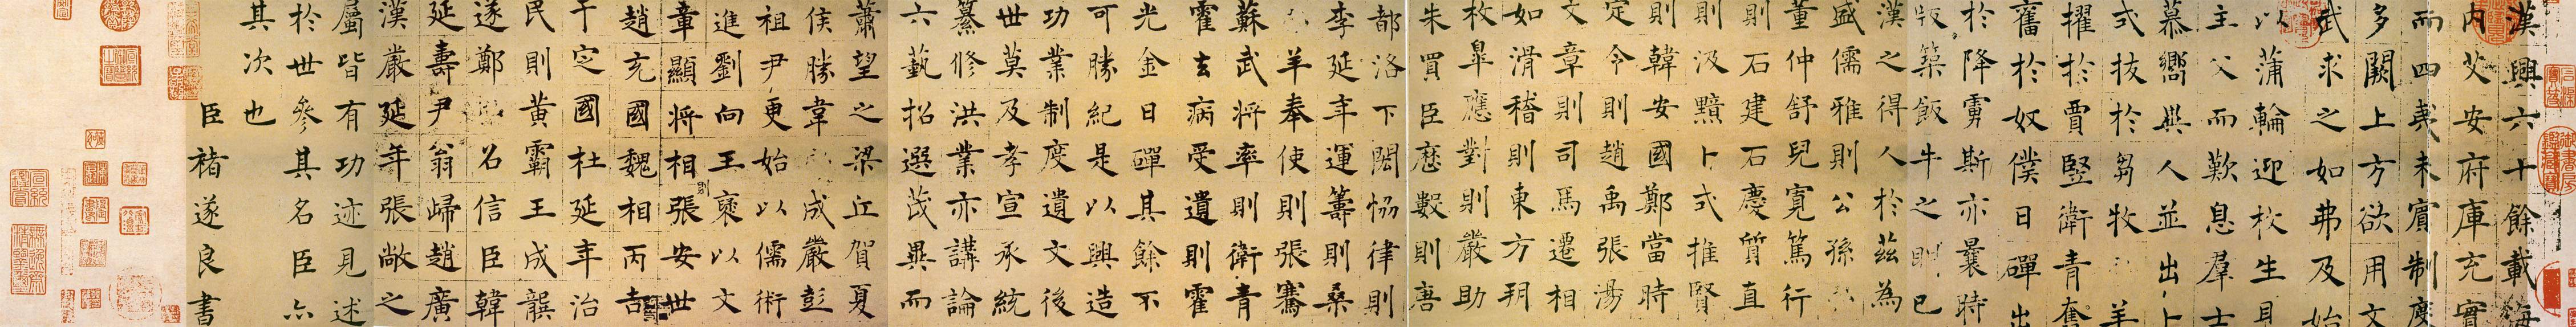 漢興六十餘載海
内艾安府庫充實
而四夷未賓制度
多闕上方欲用文
武求之如弗及始
以蒲輪迎枚生見
主父而歎息羣士
慕嚮異人並出卜
式拔於芻牧羊
擢於賈豎衛青奮
奮於奴僕日磾出
於降虜斯亦曩時
版築飯牛之已
漢之得人於茲為
盛儒雅則公孫
董仲舒兒寬篤行
則石建石慶質直
則汲黯卜式推賢
則韓安國鄭當時
定令則趙禹張湯
文章則司馬遷相
如滑稽則東方朔
枚皐應對則嚴助
朱買臣歷數則唐
都洛下閎協律則
李延年運籌則桑
羊奉使則張騫
蘇武將率則衛青
霍去病受遺則霍
光金日磾其餘不
可勝紀是以興造
功業制度遺文後
世莫及孝宣承統
纂修洪業亦講論
六藝招選茂異而
蕭望之梁丘賀夏
侯勝韋成嚴彭
祖尹更始以儒術
進劉向王襃以文
章顯將相則張安世
趙充國魏相丙吉
于定國杜延年治
民則黃霸王成龔
遂鄭召信臣韓
延壽尹翁歸趙廣
漢嚴延年張敞之
屬皆有功迹見述
於世參其名臣亦
其次也
臣褚遂良書